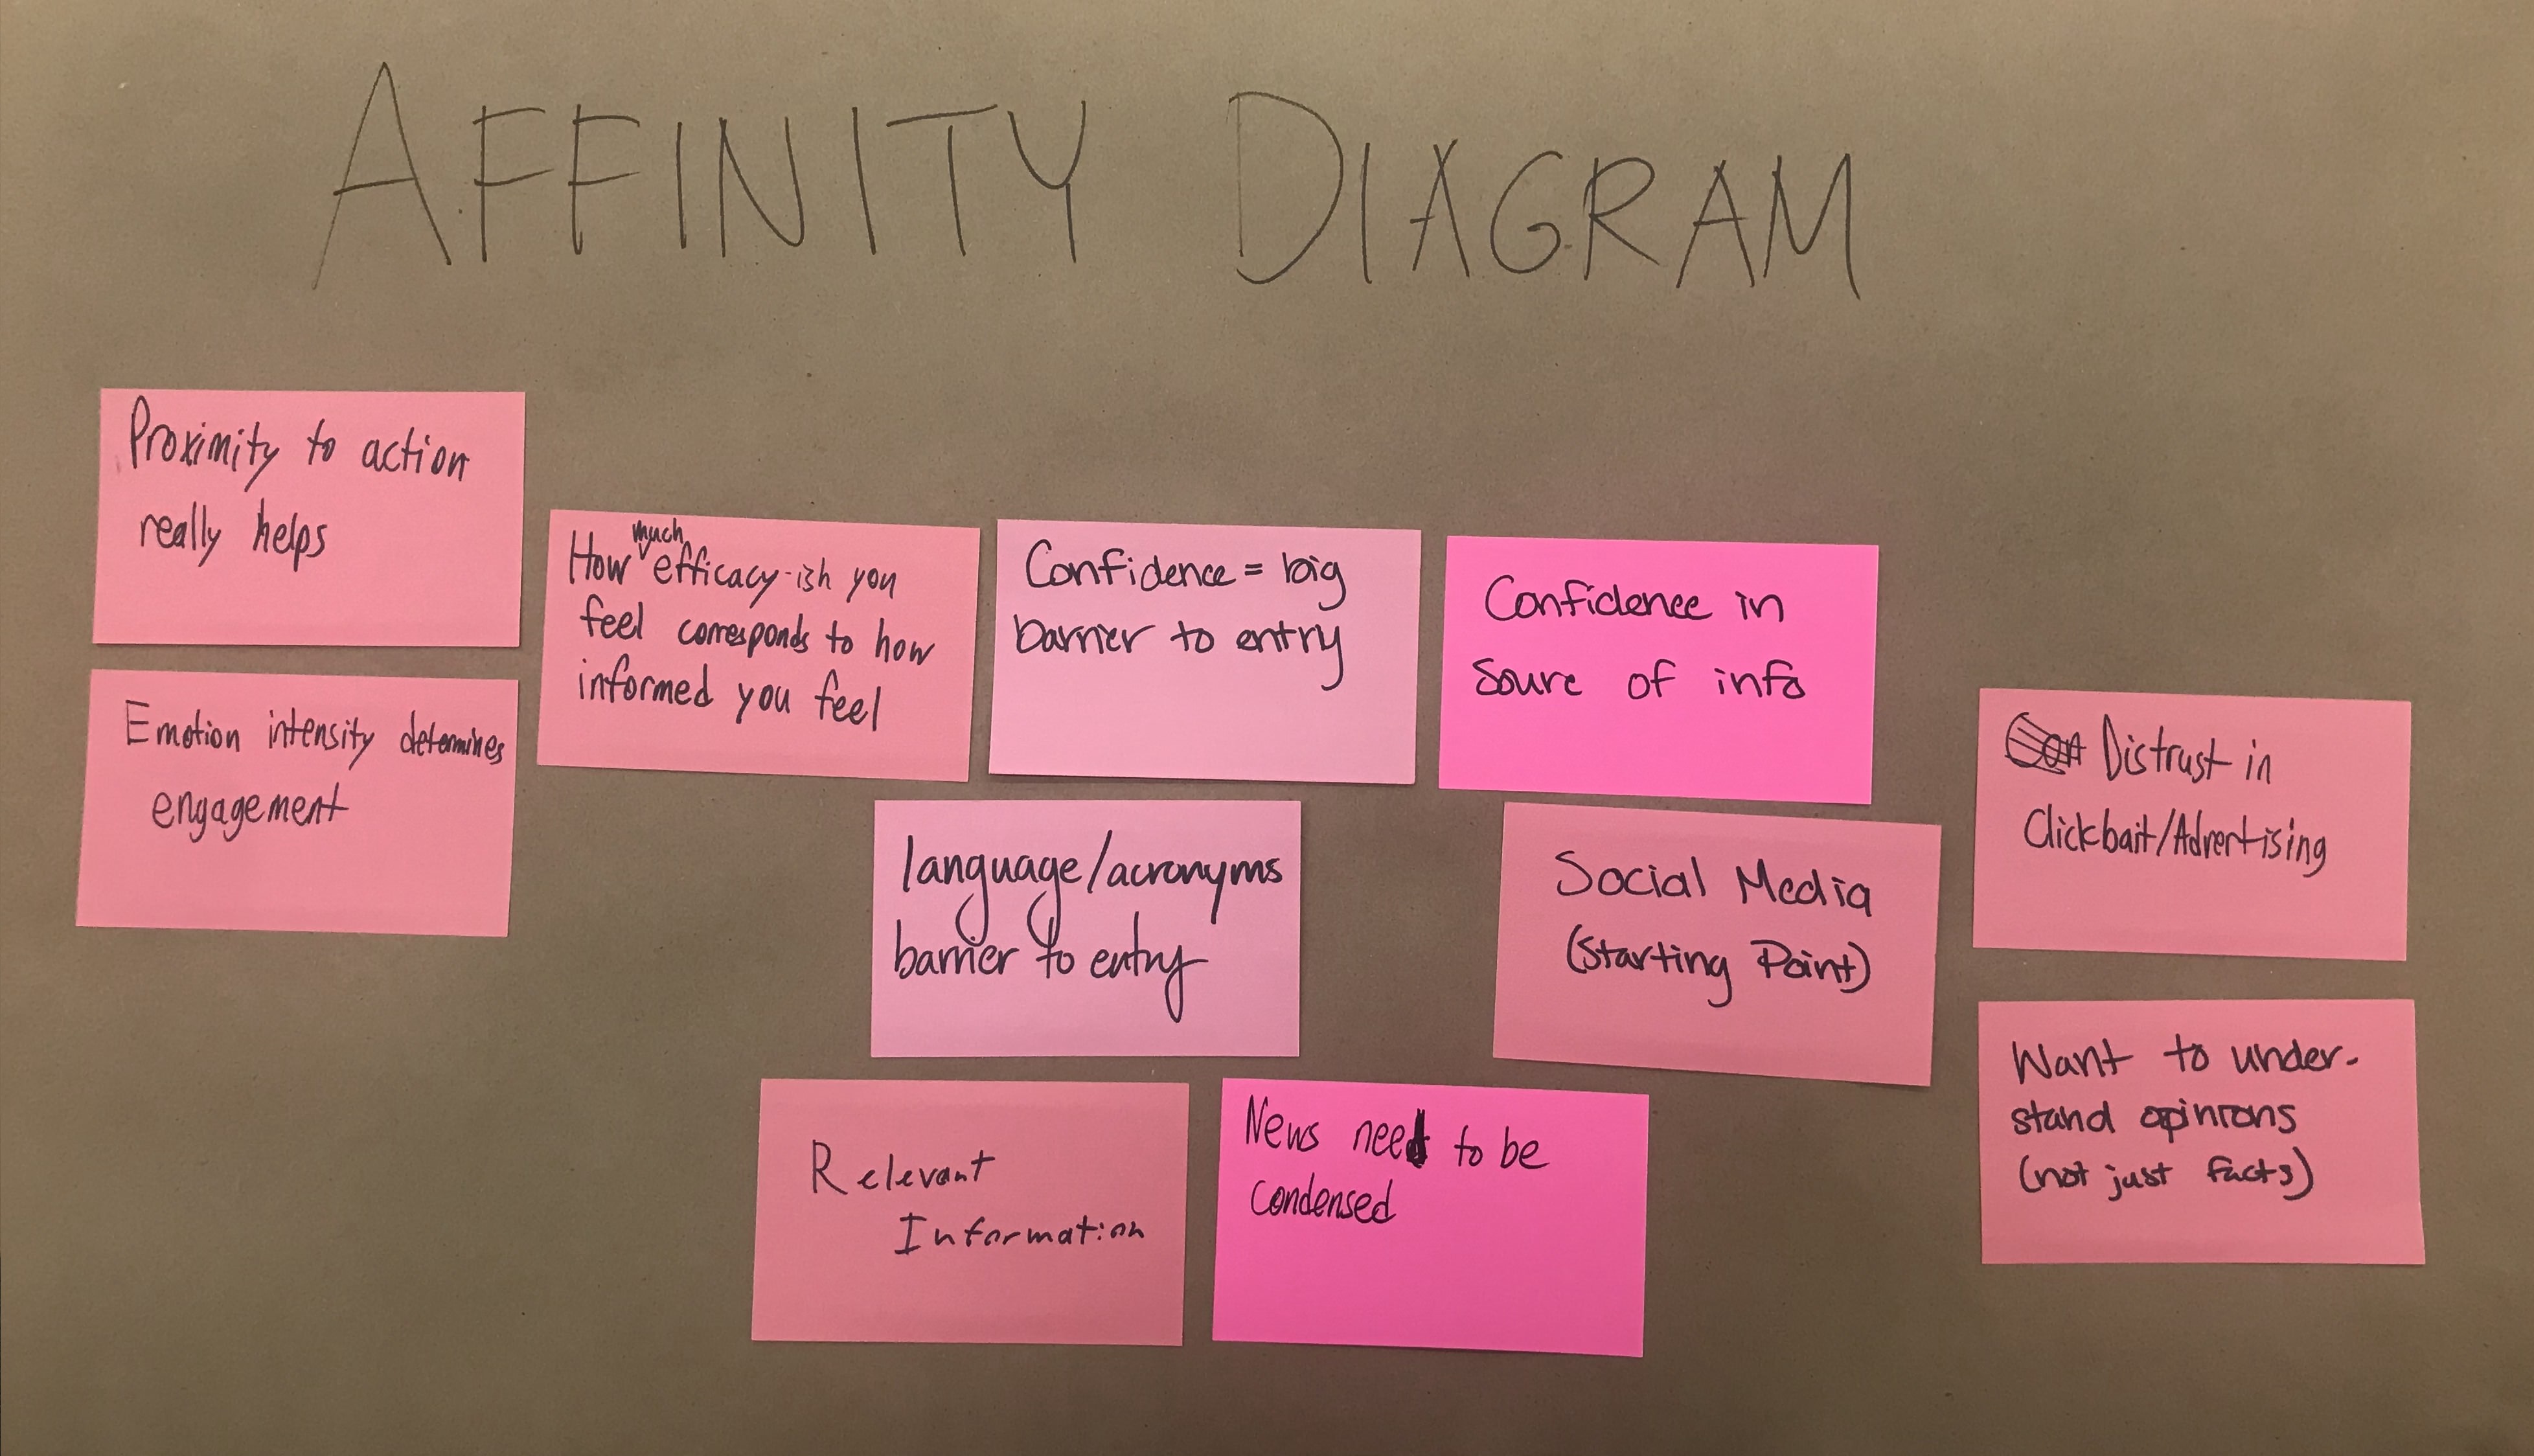 AFFINITY DIAGRAM
Proximity to action
really helps
Emotion intensity determines
engagement
How much efficacy-ish you
feel corresponds to how
informed you feel
Confidence = big
barrier to entry
Confidence in
Sourc of info
language/acronyms
barrier to entry
Social Media
(Starting Point)
Distrust in
Clickbait/Advertising
Want to under-
stand opinions
(not just facts)
Relevant
Information
News need to be
condensed